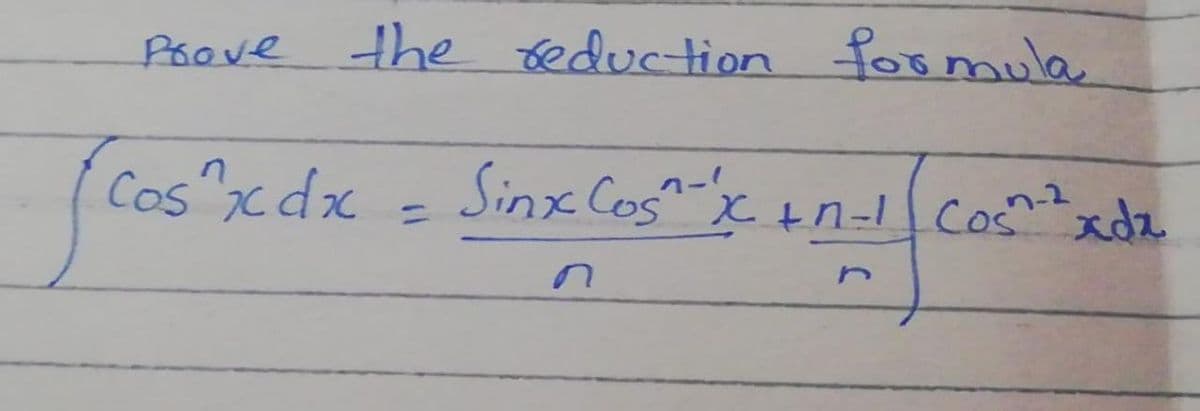 Prove the reduction formula
∫ Cosⁿx dx = Sinx Cosⁿ⁻¹x / n + n-1 / n ∫ Cosⁿ⁻²x dx